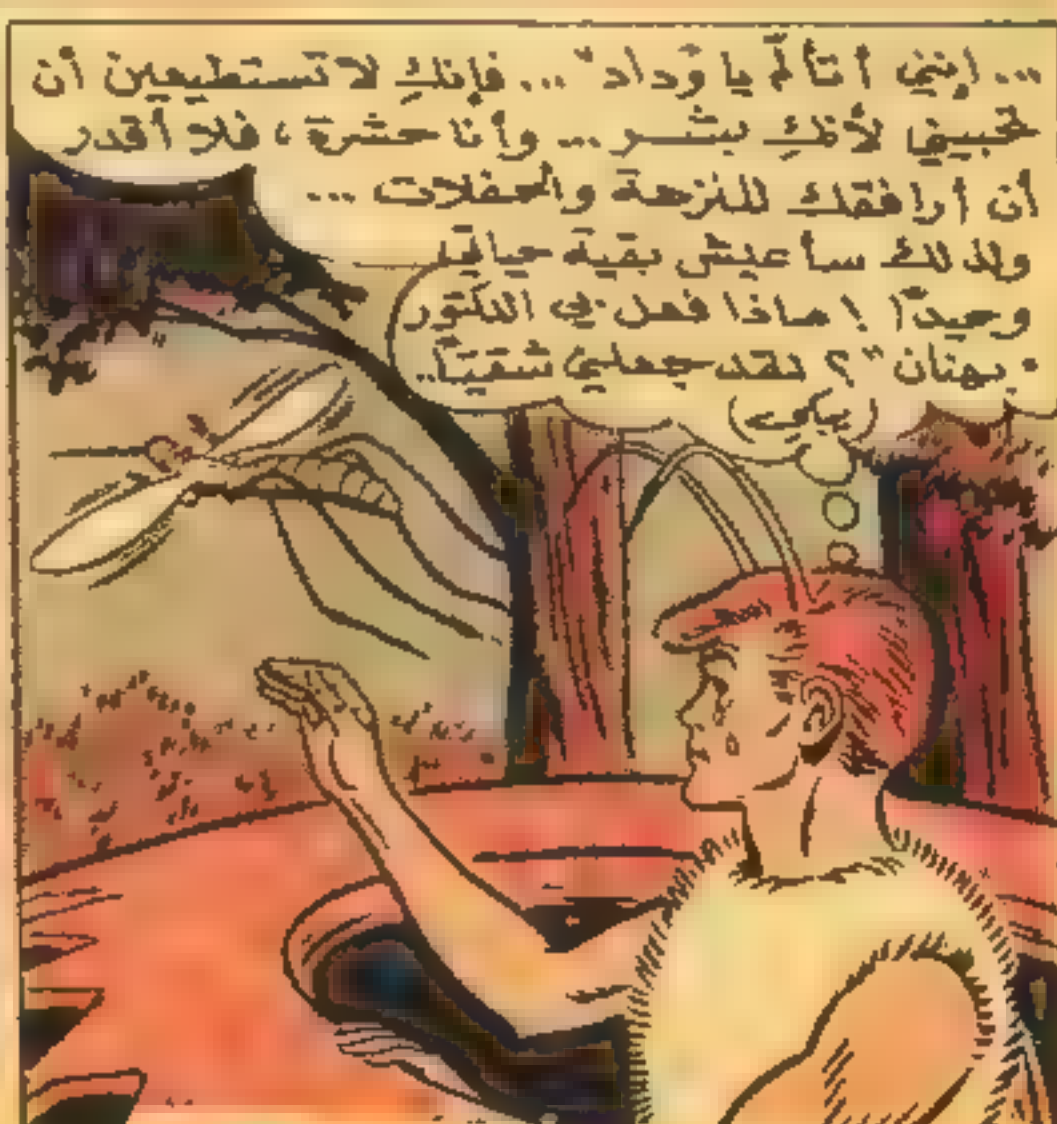 ... إنني أتألّم يا وداد"... فإنكِ لا تستطيعين أن
تحبيني لأنكِ بشر... وأنا حشرة، فلا أقدر
أن أرافقك للنزهة والحفلات ...
ولذلك سأعيش بقية حياتي
وحيدًا! ماذا فعل بي الدكتور
"بهنان"؟ لقد جعلني شقيًا..